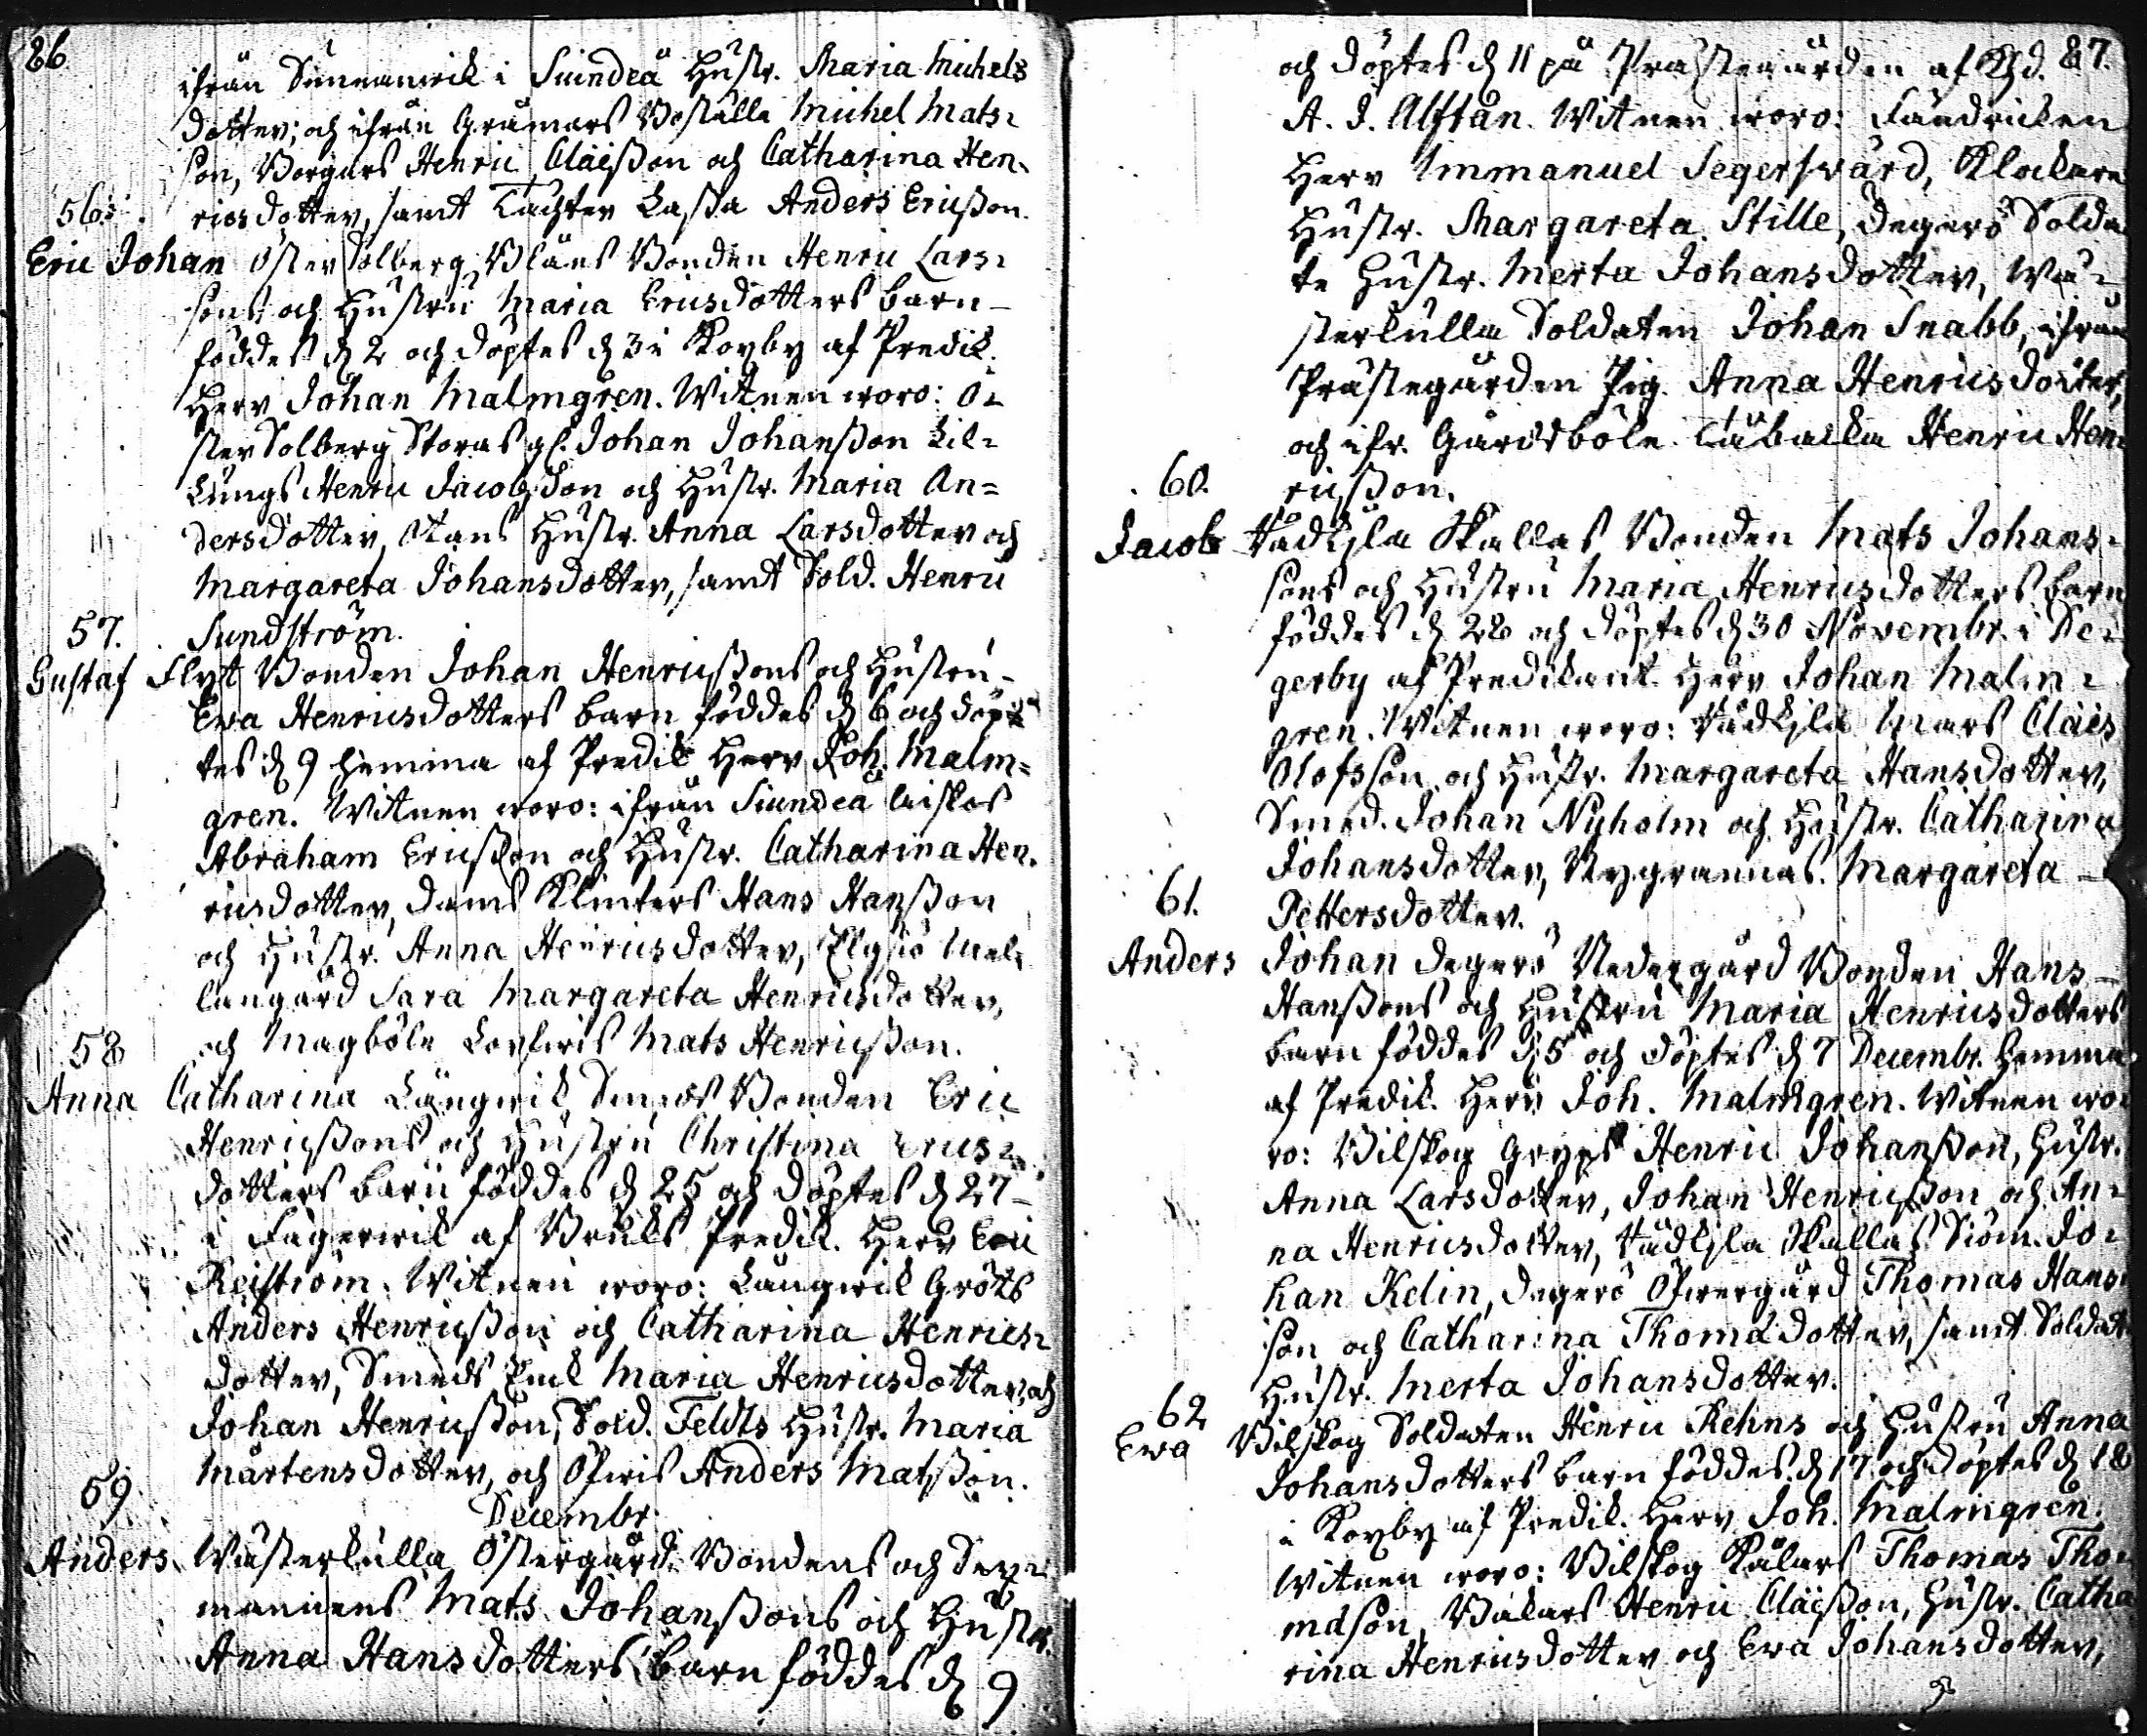 86
ifrån Sunnanwik i Siundeå Hustr. Maria Michels
dotter; och ifrån Gråmars Boställe Michel Mats=
son, Borgars Henric Claësson och Catharina Hen=
ricsdotter, samt Tächter Lassa Anders Ericsson.
56.
Eric Johan Öster Solberg Blåns Bonden Henric Lars=
sons och Hustru Maria Ericsdotters barn
föddes d. 2 och döptes d. 3 i Koxby af Predik.
Herr Johan Malmgren. Witnen woro: Ö=
ster Solberg Storas gl. Johan Johansson Lil=
Kungs Henric Jacobsson och Hustr. Maria An=
dersdotter, Stans Hustr. Anna Larsdotter och
Margareta Johansdotter, samt Sold. Henric
Sundström.
57.
Gustaf Flyt Bonden Johan Henricssons och Hustru
Ewa Henricsdotters barn föddes d. 6 och döp=
tes d. 9 hemma af Predik Herr Joh. Malm=
gren. Witnen woro: ifrån Siundeå
Abraham Ericsson och Hustr. Catharina Hen=
ricsdotter, Dams Klinters Hans Hansson
och Hustr. Anna Henricsdotter, Elgsiö Mel=
langård Sara Margareta Henricsdotter,
och Magböle Mats Henricsson.
58
Anna Catharina Långwik Smeds Bonden Eric
Henricssons och Hustru Christina Erics=
dotters barn föddes d. 25 och döptes d. 27
i Fagerwik af Bruks Predik. Herr Eric
Reiström. Witnen woro: Långwik Gröts
Anders Henricsson och Catharina Henrics=
dotter, Smeds Enk Maria Henricsdotter, och
Johan Henricsson, Sold. Feldts Hustr. Maria
Mårtensdotter, och Öfwis Anders Matsson.
59.
Decembr.
Anders Wästerkulla Östergård Bondens och Sex=
mannens Mats Johanssons och Hustr.
Anna Hansdotters barn föddes d. 9
87.
och döptes d. 11 på Prästegården af
A. J. Alftan. Witnen woro: Fändricken
Herr Immanuel Segerswärd, Klockare
Hustr. Margareta Stille, Degerö Solda
te Hustr. Merta Johansdotter, Wä=
sterkulla Soldaten Johan Snabb, ifrån
Prästegården Pig. Anna Henricsdotter,
och ifr. Gårdsböle Täbacka Henric Hen=
ricsson.
60.
Jacob Wadkyla Skallas Bonden Mats Johans=
sons och Hustru Maria Henricsdotters barn
föddes d. 28 och döptes d. 30 Novembr. i De=
gerby af Predikant. Herr Johan Malm=
gren. Witnen woro: Wadkyla Mars Claës
Olofsson och Hustr. Margareta Hansdotter,
Smed. Johan Nyholm och Hustr. Catharina
Johansdotter, Nygrannas Margareta
Pettersdotter.
61.
Anders Johan Degerö Nedergård Bonden Hans
Hanssons och Hustru Maria Henricsdotters
barn föddes d. 5 och döptes d. 7 Decembr. hemma
af Predik. Herr Joh. Malmgren. Witnen wo=
ro: Bilskog Grops Henric Johansson, Hustr.
Anna Larsdotter, Johan Henricsson och An=
na Henricsdotter, Wadkyla Skallas Siöm. Jo=
han Kelin, Degerö Öfwergård Thomas Hans=
son och Catharina Thomædotter, samt Soldat
Hustr. Merta Johansdotter.
62
Ewa Bilskog Soldaten Henric Rehns och Hustru Anna
Johansdotters barn föddes d. 17 och döptes d. 18
i Koxby af Predik. Herr Joh. Malmgren.
Witnen woro: Bilskog Kälars Thomas Tho=
mæson, Bakars Henric Claësson, Hustr. Catha
rina Henricsdotter och Ewa Johansdotter,